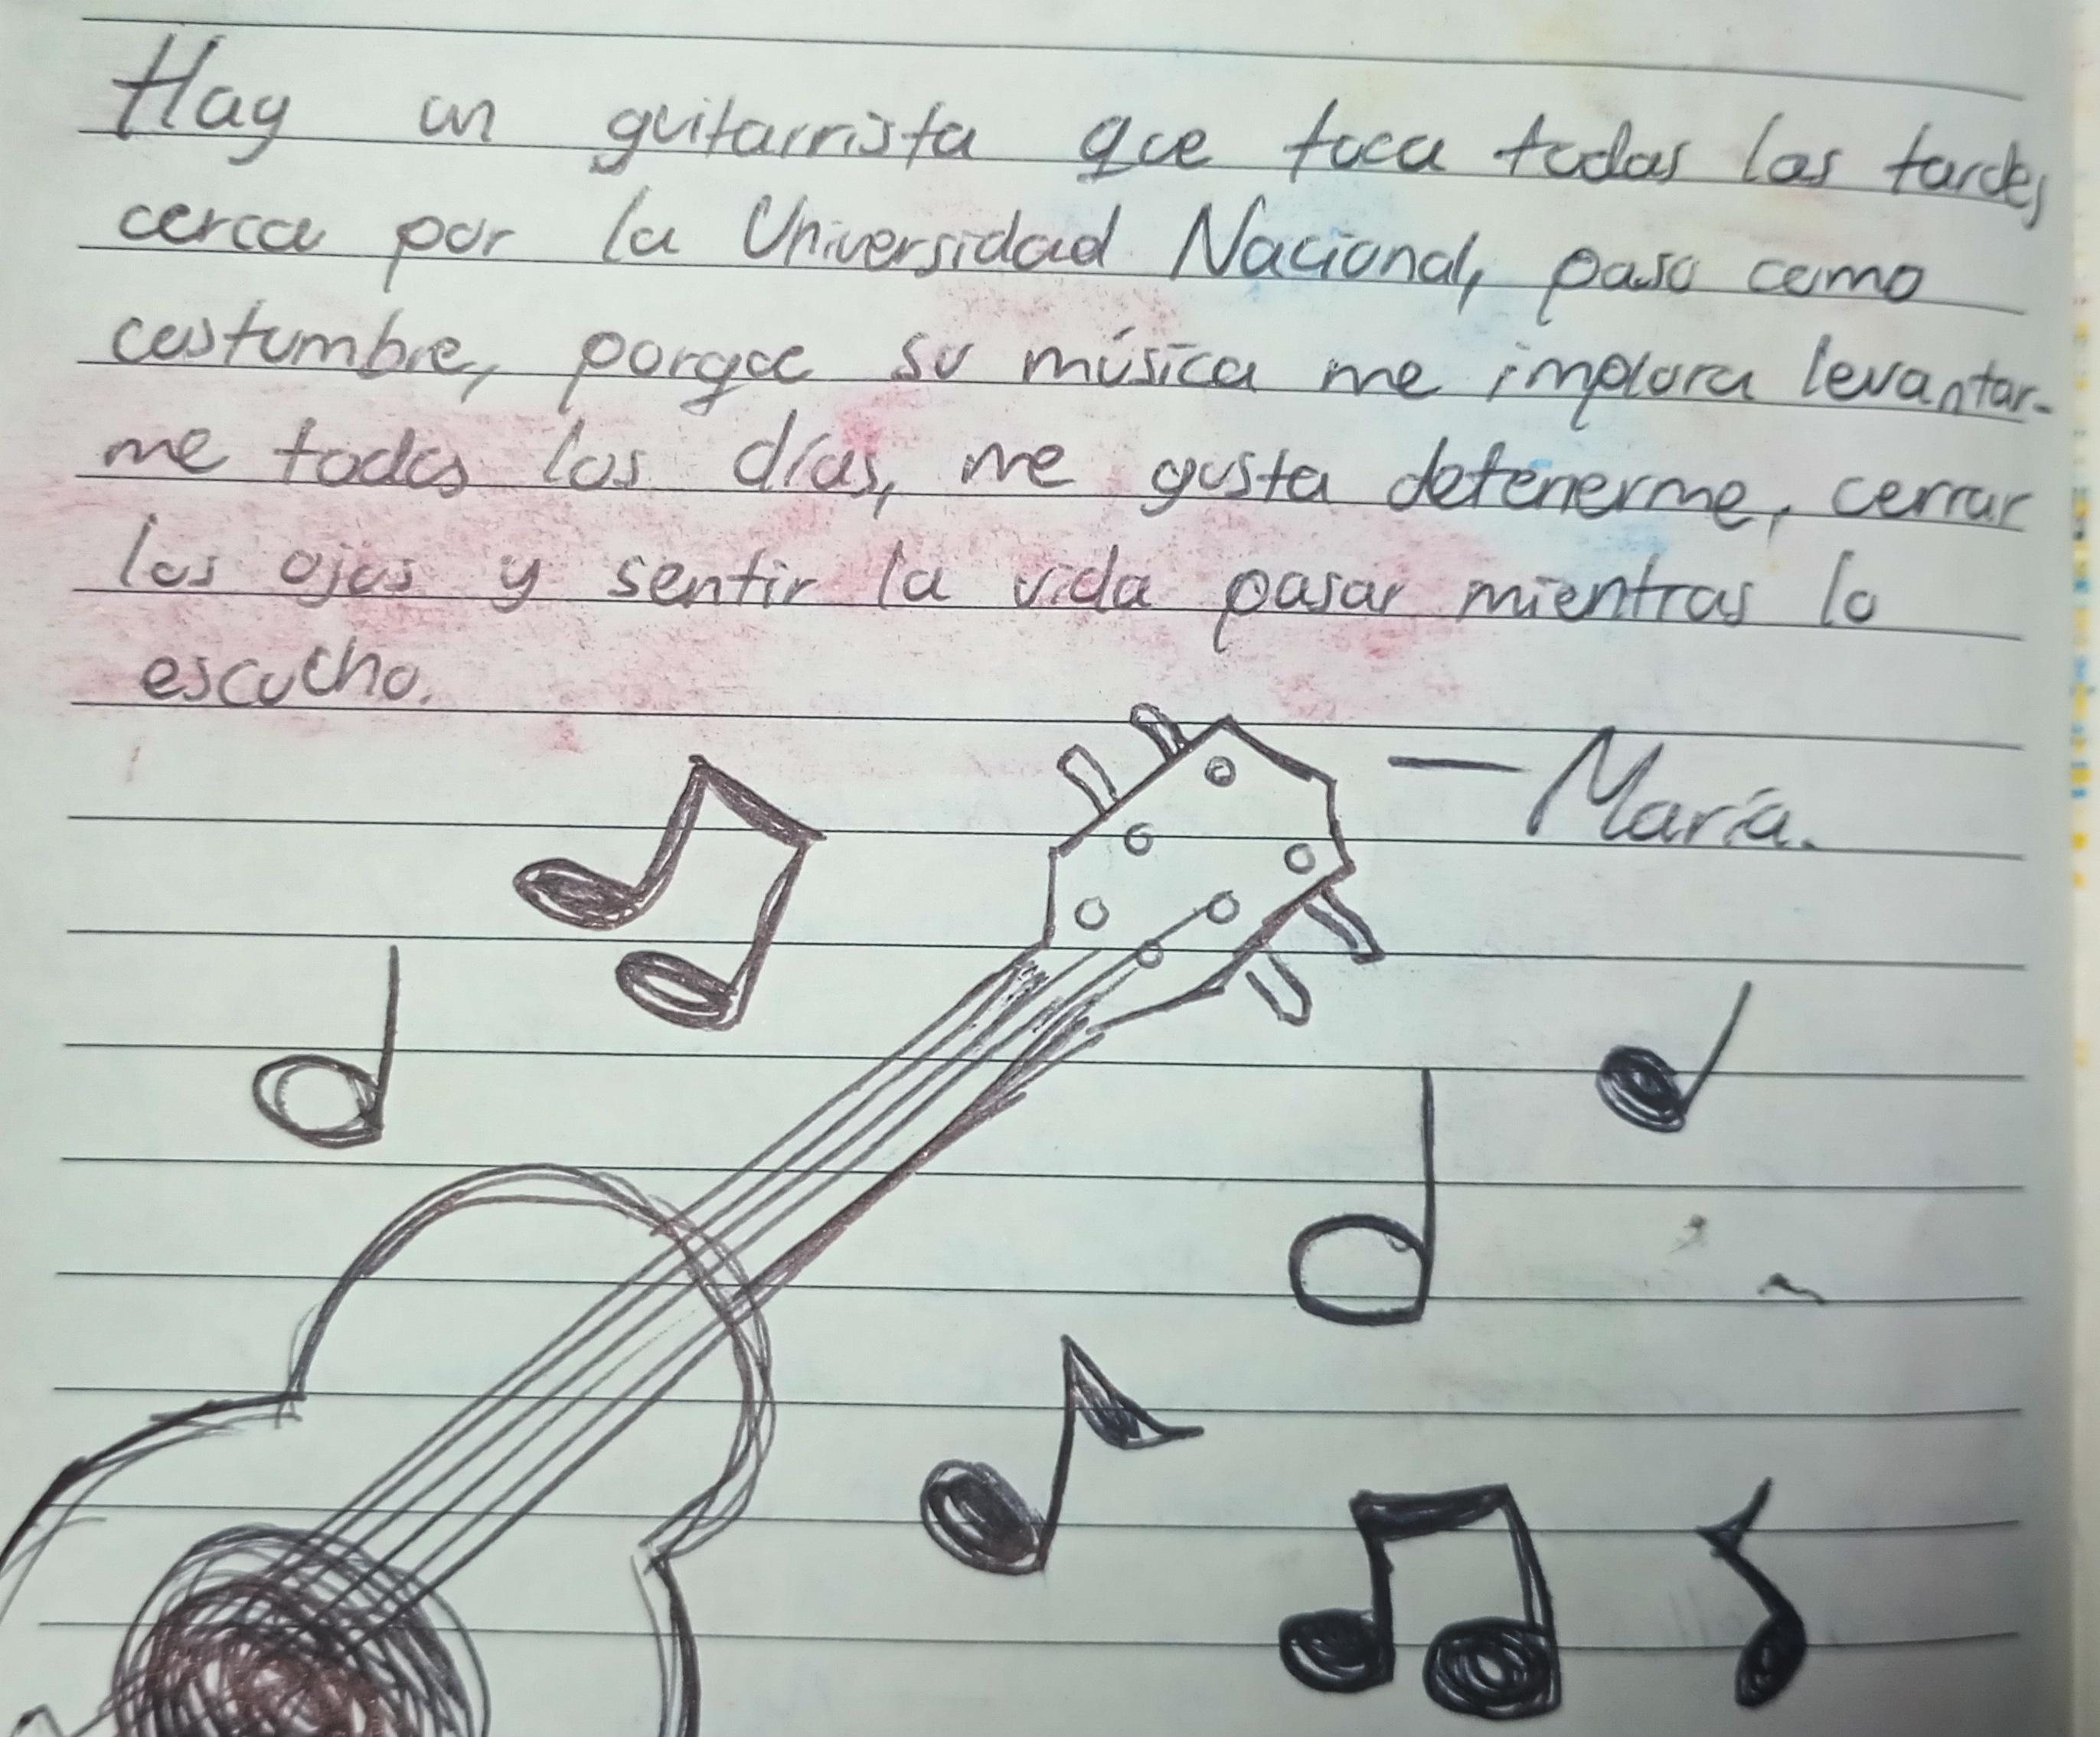 Hay un guitarrista que toca todas las tardes
cerca por la Universidad Nacional, paso como
costumbre, porque su música me implora levantar-
me todos los días, me gusta detenerme, cerrar
los ojos y sentir la vida pasar mientras lo
escucho.
— María.